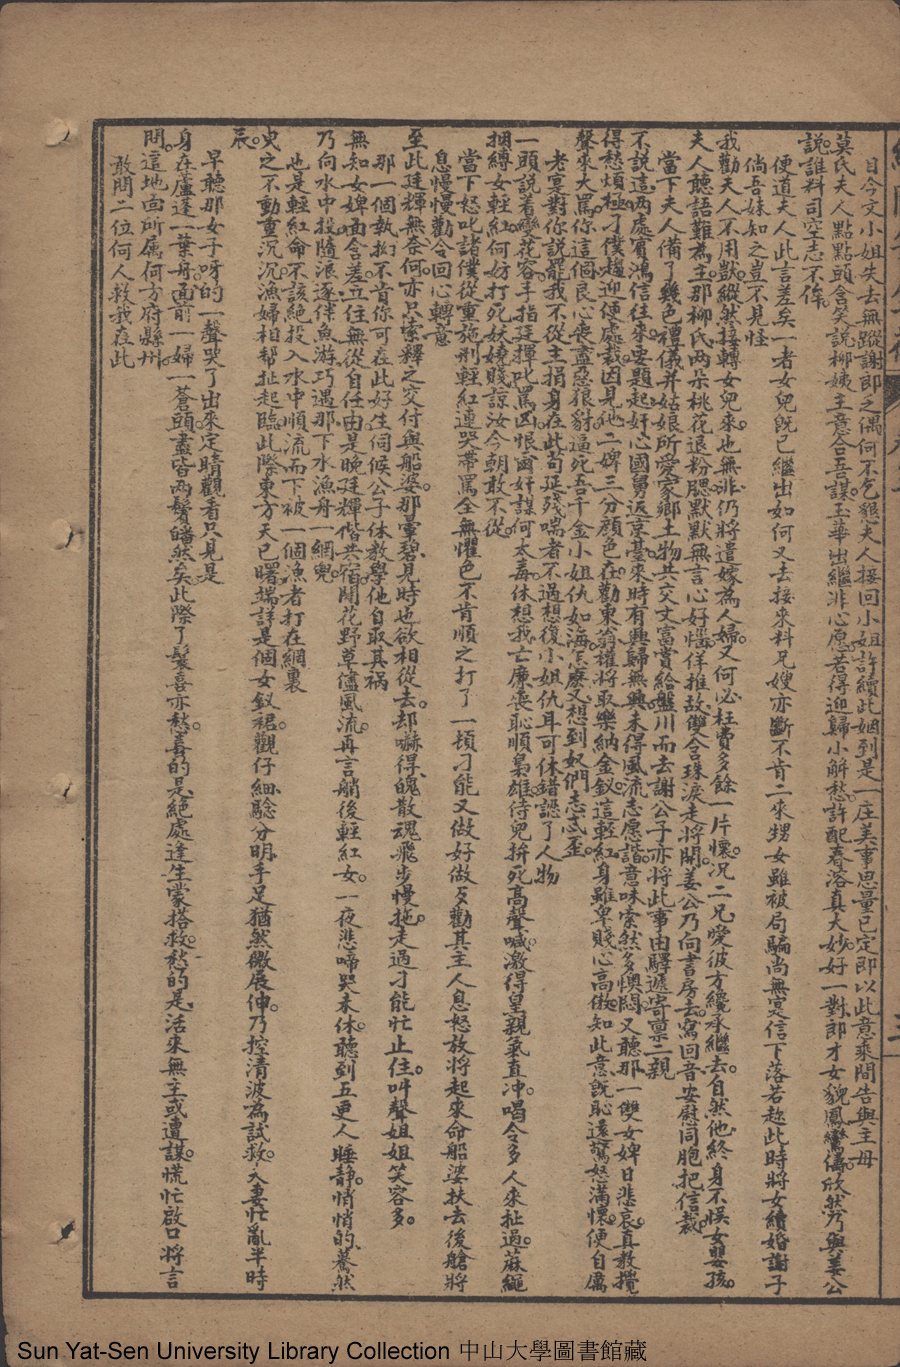 日今文小姐失去無蹤謝郎之偶何不乞懇夫人接回小姐許續此姻到是一庄美事思量已定即以此意乘閒告與主母
莫氏夫人點點頭含笑說柳姨主意合吾謀玉華出繼非心愿若得迎歸小解愁許配春溶真大妙好一對郎才女貌鳳鸞儔欣然乃與姜公
說誰料司空志不侔
便道夫人此言差矣一者女兒既已繼出如何又去接來料兄嫂亦斷不肯二來甥女雖被局騙尚無寔信下落若趂此時將女續婚謝子
倘吾妹知之豈不見怪
我勸夫人不用獃縱然接轉女兒來也無非仍將遣嫁為人婦又何必枉費多餘一片懷況二兄曖彼方纔承繼去自然他終身不悞女嬰孩
夫人聽語難為主那柳氏兩朵桃花退粉腮默默無言心好惱佯推故雙含珠淚走將開姜公乃向書房去寫回音安慰同胞把信裁
當下夫人備了幾色禮儀并姑娘所愛家鄉土物共交文富賞給盤川而去謝公子亦將此事由驛遞寄稟二親
不說這兩處賓鴻信往來要題起奸心國舅返京臺來時有興歸無興未得風流志愿諧意味索然多懊悶又聽那一雙女婢日悲哀真教攪
得愁煩極刁僕趨迎便處裁因見他二婢三分顏色在勸東翁權將取樂納金釵這輕紅身雖卑賤心高傲知此意既恥逺驚怒滿懷便自厲
聲來大罵你這個良心喪盡惡狼豺逼死吾千金小姐仇如海怎麽又想到奴們志忒歪
老寔對你說罷我不從主捐身在此苟延殘喘者不過想復小姐仇耳可休錯認了人物
一頭說着變花容手指廷揮叱罵凶恨爾奸謀何太毒休想我亡廉喪恥順梟雄侍兒拚死高聲喊激得皇親氣直冲喝令多人來扯過麻繩
捆縛女輕紅何妨打死妖嬈賤諒汝今朝敢不從
當下怒叱諸僕從重施刑輕紅連哭帶罵全無懼色不肯順之打了一頓刁能又做好做歹勸其主人息怒放將起來命船婆扶去後艙將
息慢慢勸令回心轉意
至此廷輝無奈何亦只索釋之交付與船婆那暈碧見時也欲相從去却嚇得魄散魂飛步慢拖走過刁能忙止住叫聲姐姐笑容多
那一個執抝不肯你可在此好生伺候公子休教學他自取其禍
無知女婢面含羞立住無從自任由是晚廷輝偕共宿閒花野草儘風流再言艄後輕紅女一夜悲啼哭未休聽到五更人睡靜悄悄的驀然
乃向水中投隨浪逐伴魚游巧遇那下水漁舟一網兜
也是輕紅命不該絕投入水中順流而下被一個漁者打在網裏
曳之不動重沉沉漁婦相幫扯起臨此際東方天已曙端詳是個女釵裙觀仔細驗分明手足猶然微展伸乃控清波為試救夫妻忙亂半時
辰
早聽那女子呀的一聲哭了出來定睛觀看只見是
身在蘆蓬一葉舟面前一婦一蒼頭盡皆兩鬢皤然矣此際了鬟喜亦愁喜的是絕處逢生蒙搭救愁的是活來無主或遭謀慌忙啟口將言
問這地面所属何方府縣州
敢問二位何人救我在此
三
Sun Yat-Sen University Library Collection 中山大學圖書館藏